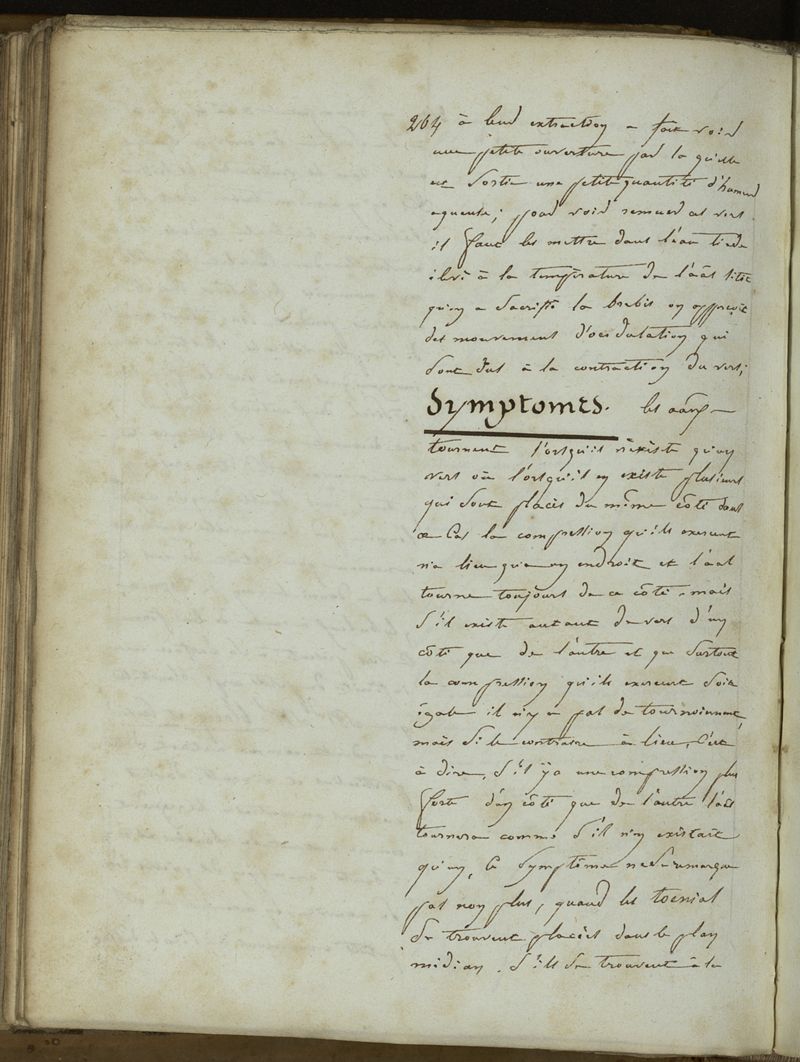 264 à leur extraction a fait voir
une petite ouverture par la qu'elle
est sortie une petite quantité d'humeur
aqueuse; pour voir remuer ces vers
il faut les mettre dans l'éau tiede
à la température de l'aâl sitôt
qu'on a sacrifié la brebis on apperçoit
des mouvement d'ocidulation qui
sont dus à la contraction du vers;
Symptomes. les aâux
tournent l'orsqu'il n'éxiste qu'un
vers où l'orsqu'il en existe plusieurs
qui sont placés du même côté dans
ce cas la compression qu'ils exercent
n'a lieu qu'a un endroit et l'aâl
tourne toujours de ce côté. mais
s'il existe autant de vers d'un
côté que de l'autre et que surtout
la compression qu'ils exercent soit
égale il n'y a pas de tournoiement,
mais si le contraire à lieu, c'est
à dire, s'il y a une compression plus
forte d'un côté que de l'autre l'aâl
tournera comme s'il n'en existait
qu'un, ce symptôme ne se remarque
pas non plus, quand les toenias
se trouvent placés dans le plan
midian. s'ils se trouvent à la